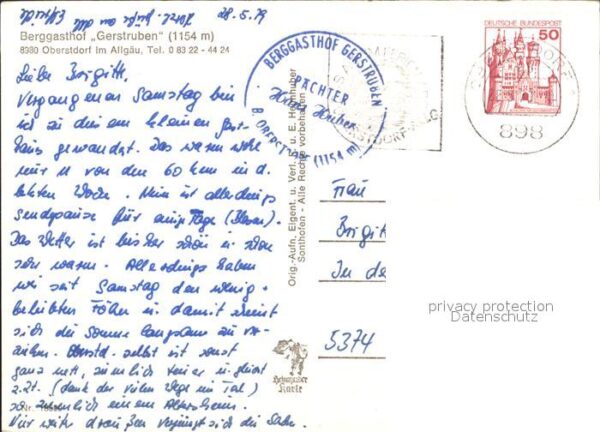 28.5.79
Berggasthof „Gerstruben" (1154 m)
8980 Oberstdorf im Allgäu, Tel. 0 83 22 - 44 24
Liebe Brigitte,
Vergangenen Samstag bin
ich zu diesem kleinen Gast-
haus gewandert. Das waren wohl
u von den 60 km in d.
letzten Woche. Nun ist allerdings
Sendepause für einige Tage (Blasen).
Das Wetter ist bisher schön u. schon
sehr warm. Allerdings haben
wir seit Samstag den wenig
beliebten Föhn u. damit scheint
sich die Sonne langsam zu ver-
ziehen. Oberstd. selbst ist sonst
ganz nett, ziemlich teuer u. gleicht
z.Zt. (dank der vielen Wege im Tal)
so ziemlich einem Altersheim.
Nur weiter draußen verjüngt sich die Sache.
Nr.
BERGGASTHOF GERSTRUBEN
PÄCHTER
Huber
B. OBERSTDORF (1154 m)
DEUTSCHE BUNDESPOST
50
898
Orig.-Aufn. Eigent. u. Verl. u. E. Heimhuber
Sonthofen - Alle Rechte vorbehalten
Frau
Brigit
In de
5374
privacy protection
Datenschutz
Heimhuber
Karte